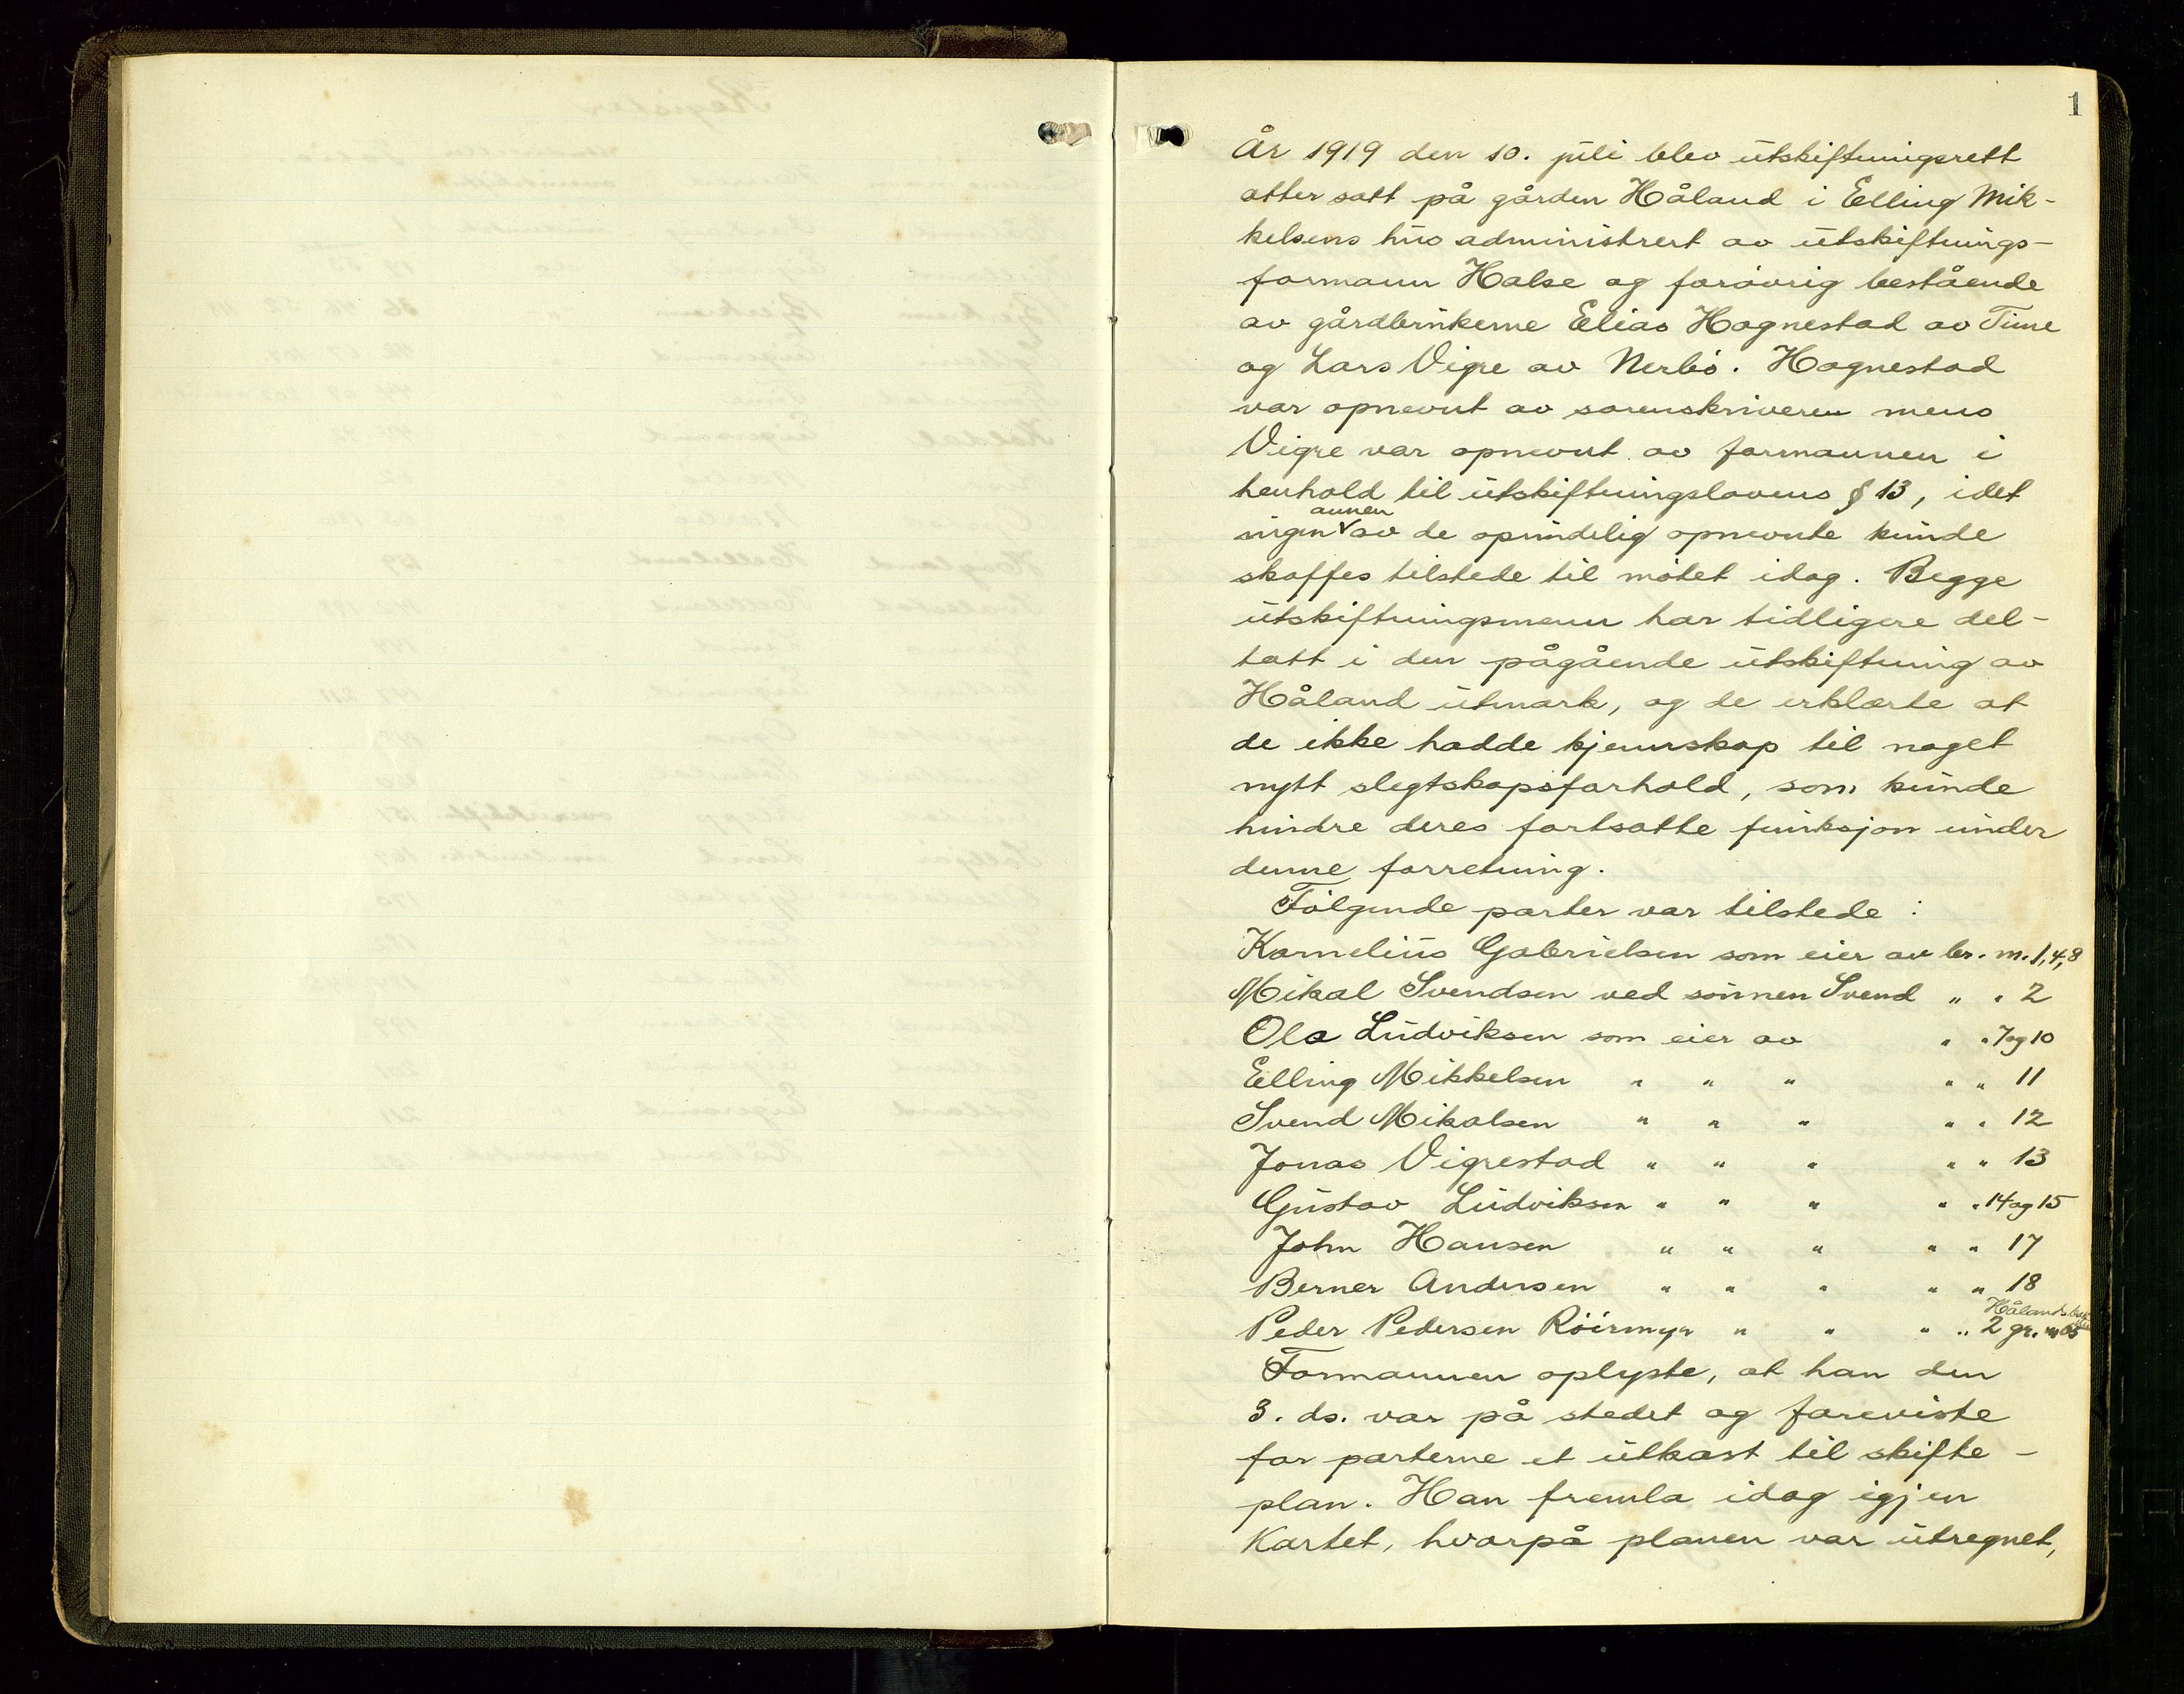 1
År 1919 den 10. juli blev utskiftningsrett
atter satt på gården Håland i Elling Mik-
kelsens hus administrert av utskiftnings-
formann Halse og forøvrig bestående
av gårdbrukerne Elias Hognestad av Time
og Lars Vigre av Nerbø. Hognestad
var opnevnt av sorenskriveren mens
Vigre var opnevnt av formannen i
henhold til utskiftningslovens § 13, idet
annen
ingen av de oprindelig opnevnte kunde
skaffes tilstede til møtet idag. Begge
utskiftningsmenn har tidligere del-
tatt i den pågående utskiftning av
Håland utmark, og de erklærte at
de ikke hadde kjennskap til noget
nytt slegtskapsforhold, som kunde
hindre deres fortsatte funksjon under
denne forretning.
Følgende parter var tilstede :
Kornelius Gabrielsen som eier av br. nr. 1, 4, 8
Mikal Svendsen ved sønnen Svend " " 2
Ola Ludviksen som eier av " " 7 og 10
Elling Mikkelsen " " " " " 11
Svend Mikalsen " " " " " 12
Jonas Vigrestad " " " " " 13
Gustav Ludviksen " " " " " 14 og 15
John Hansen " " " " " 17
Berner Andersen " " " " " 18
Peder Pedersen Röirmyr " " " " 2 gr. nr 65
Formannen oplyste, at han den
3. ds. var på stedet og foreviste
for parterne et utkast til skifte-
plan. Han fremla idag igjen
Kartet, hvorpå planen var utregnet,